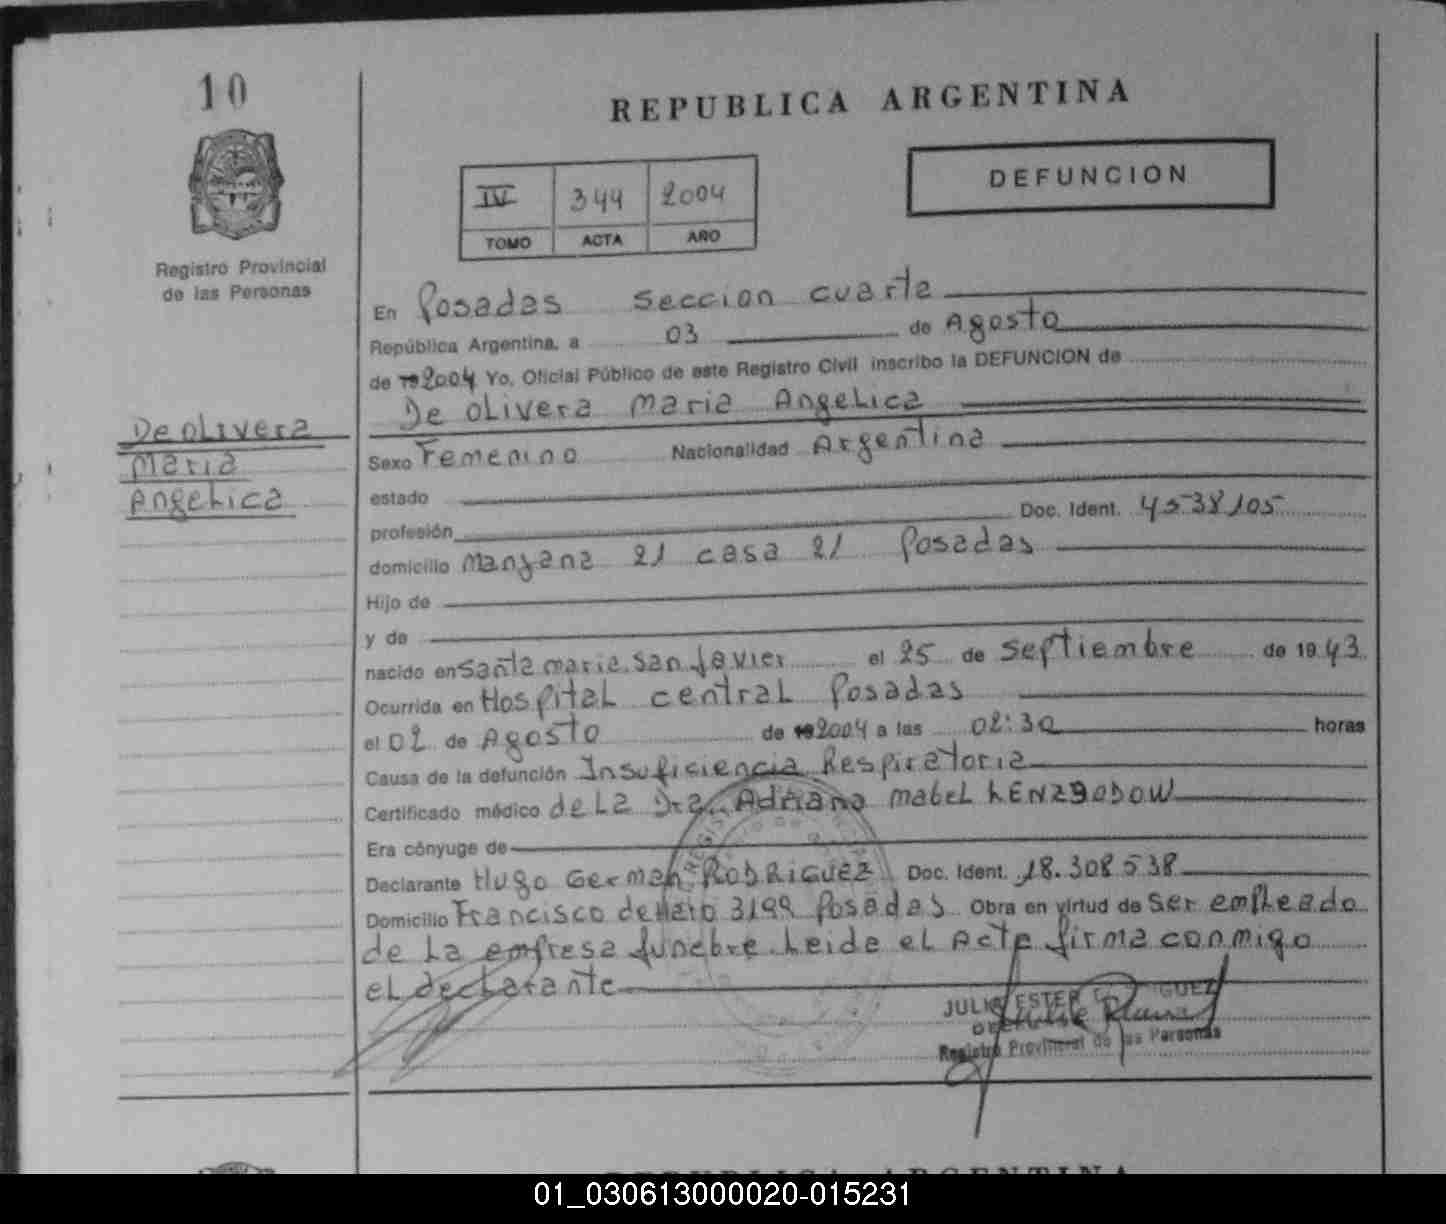 10
REPUBLICA ARGENTINA
DEFUNCION
IV 344 2004
TOMO ACTA AÑO
Registro Provincial
de las Personas
En Posadas seccion cuarta
República Argentina, a 03 de Agosto
de 19 2004 Yo, Oficial Público de este Registro Civil inscribo la DEFUNCION de
De oLivera maria AngeLica
De oLivera
maria
AngeLica
Sexo Femenino Nacionalidad Argentina
estado
profesión Doc. Ident. 4538105
domicilio manzana 21 casa 21 Posadas
Hijo de
y de
nacido en Santa maria San Javier el 25 de septiembre de 19 43
Ocurrida en HospitaL centraL Posadas
el 02 de Agosto de 19 2004 a las 02:30 horas
Causa de la defunción Insuficiencia Respiratoria
Certificado médico de La Dra. Adriana mabeL
Era cónyuge de
Declarante Hugo German RODRIGUEZ Doc. Ident. 18.308.538
Domicilio Francisco de Haro 3199 Posadas Obra en virtud de ser empleado
de La empresa funebre. Leida eL Acta firma conmigo
eL declarante
ESTER
Registro Provincial de las Personas
REPUBLICA ARGENTINA
01_030613000020-015231